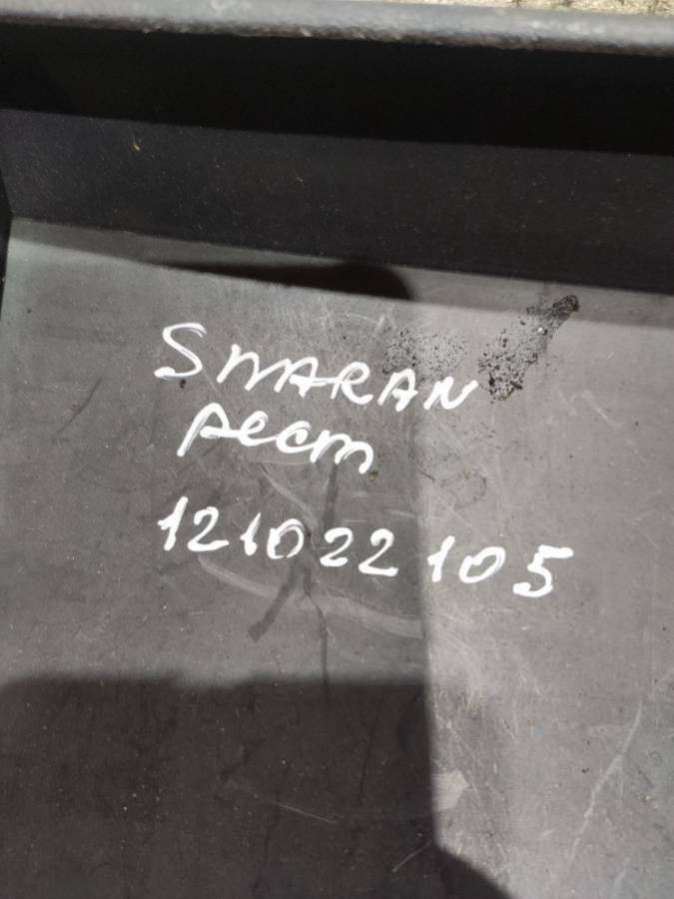 SHARAN
рест
121022105